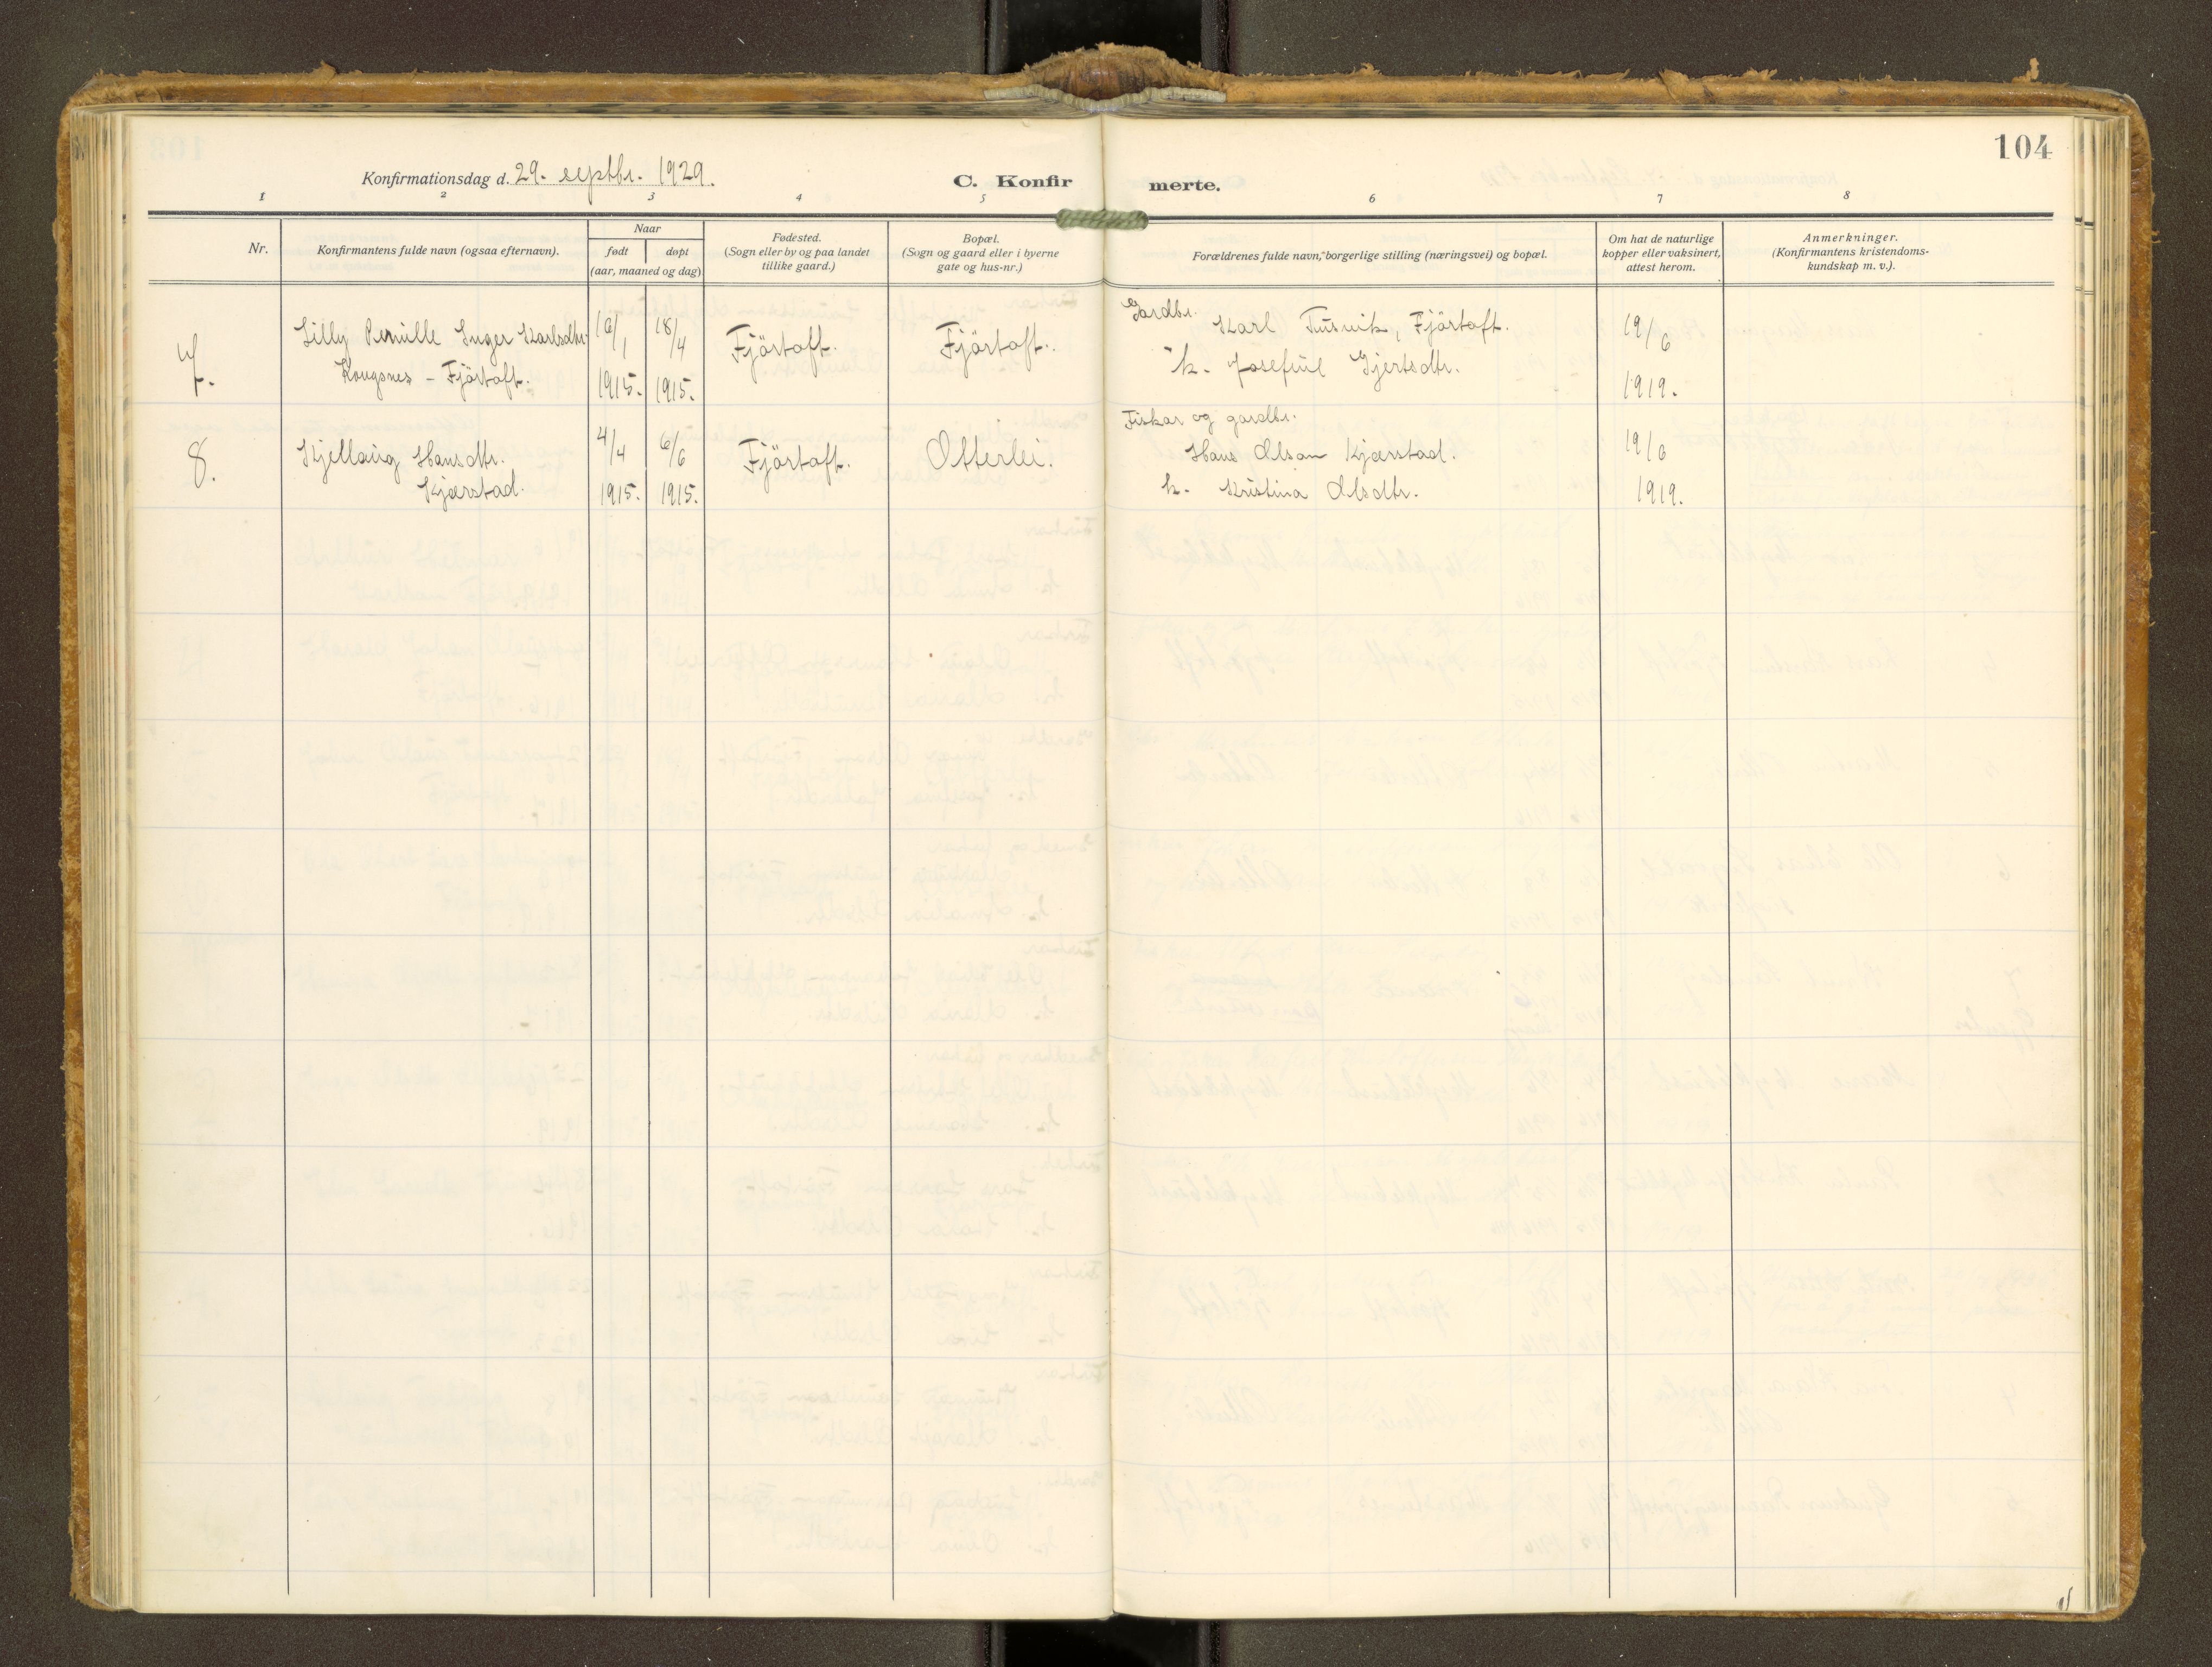 104
Konfirmationsdag d. 29. septbr. 1929.
C. Konfirmerte.
1 2 3 4 5 6 7 8
Nr.
Konfirmantens fulde navn (ogsaa efternavn).
Naar
født døpt
(aar, maaned og dag)
Fødested.
(Sogn eller by og paa landet
tillike gaard.)
Bopæl.
(Sogn og gaard eller i byerne
gate og hus-nr.)
Forældrenes fulde navn, borgerlige stilling (næringsvei) og bopæl.
Om hat de naturlige
kopper eller vaksinert,
attest herom.
Anmerkninger.
(Konfirmantens kristendoms-
kundskap m. v.).
7.
Lilly Pernille Inger Karlsdtr.
Kongsnes - Fjörtoft.
16/1
1915.
18/4
1915.
Fjörtoft.
Fjörtoft.
Gardbr.
Karl Tusvik, Fjörtoft.
k. Josefine Gjertsdtr.
19/6
1919.
8.
Kjellaug Hansdtr.
Kjærstad.
4/4
1915.
6/6
1915.
Fjörtoft.
Otterlei.
Fiskar og gardbr.
Hans Olson Kjærstad.
k. Kristina Olsdtr.
19/6
1919.